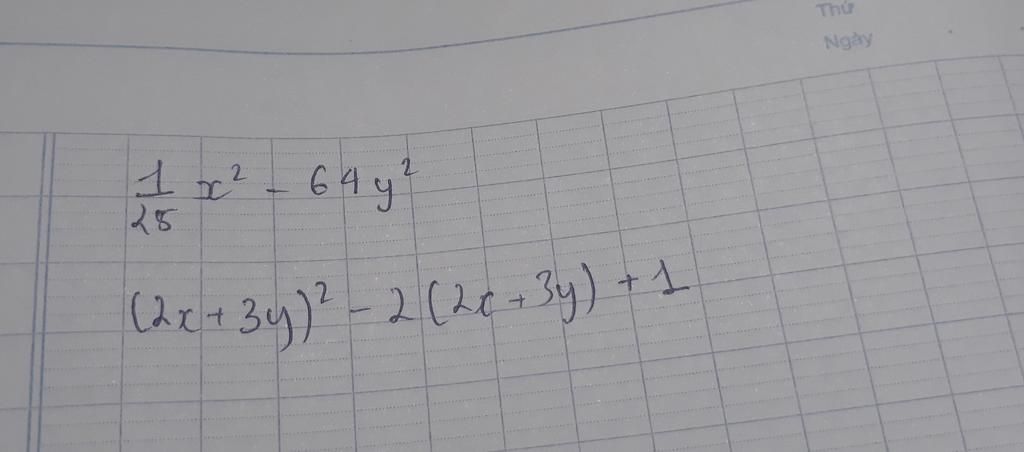 Thứ
Ngày
1/25 x² - 64y²
(2x + 3y)² - 2(2x + 3y) + 1